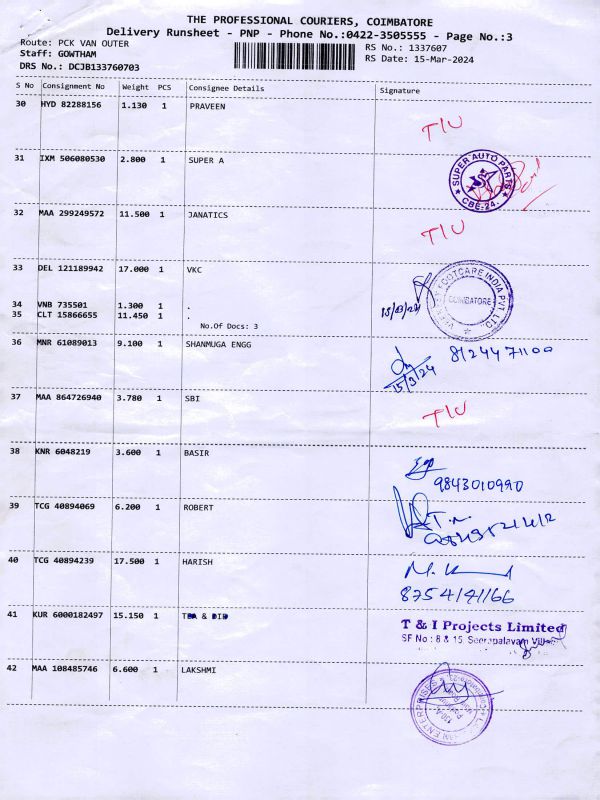 THE PROFESSIONAL COURIERS, COIMBATORE
Delivery Runsheet - PNP - Phone No.:0422-3505555 - Page No.:3
Route: PCK VAN OUTER
Staff: GOWTHAM
DRS No.: DCJB133760703
RS No.: 1337607
RS Date: 15-Mar-2024
S No Consignment No Weight PCS Consignee Details Signature
30 HYD 82288156 1.130 1 PRAVEEN
T/U
31 IXM 506080530 2.800 1 SUPER A
SUPER AUTO PARTS
CBE-24.
32 MAA 299249572 11.500 1 JANATICS
T/U
33 DEL 121189942 17.000 1 VKC
FOOTCARE INDIA PVT. LTD.
COIMBATORE
34 VNB 735501 1.300 1 .
35 CLT 15866655 11.450 1 .
No.Of Docs: 3
36 MNR 61089013 9.100 1 SHANMUGA ENGG
15/3/24
37 MAA 864726940 3.780 1 SBI
T/U
38 KNR 6048219 3.600 1 BASIR
9843010990
39 TCG 40894069 6.200 1 ROBERT
40 TCG 40894239 17.500 1 HARISH
8754141166
41 KUR 6000182497 15.150 1
T & I Projects Limited
SF No : 8 & 15 Seerapalayam
42 MAA 108485746 6.600 1 LAKSHMI
ENTERPRISES